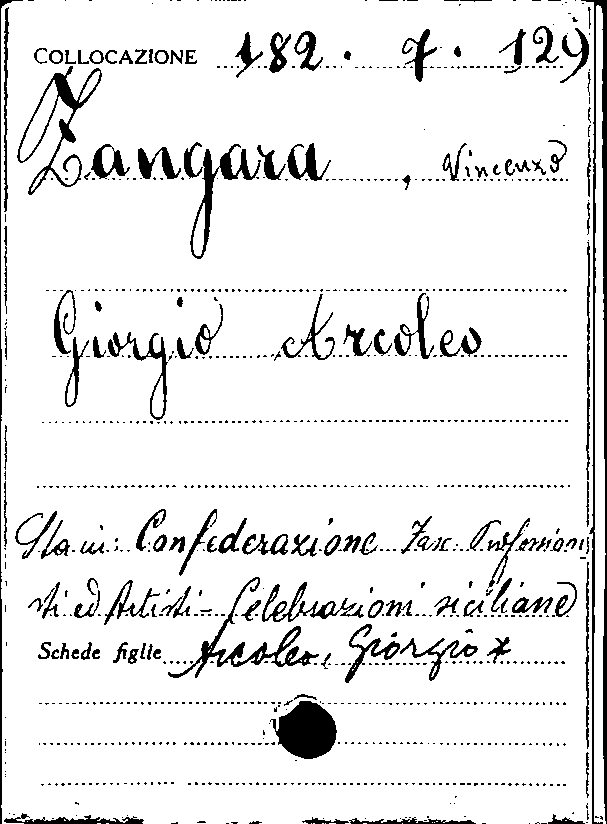 COLLOCAZIONE 182. 7. 129
Zangara, Vincenzo
Giorgio Arcoleo
Sta in: Confederazione Fasc. Professioni
sti ed Artisti - Celebrazioni siciliane
Schede figlie Arcoleo, Giorgio *